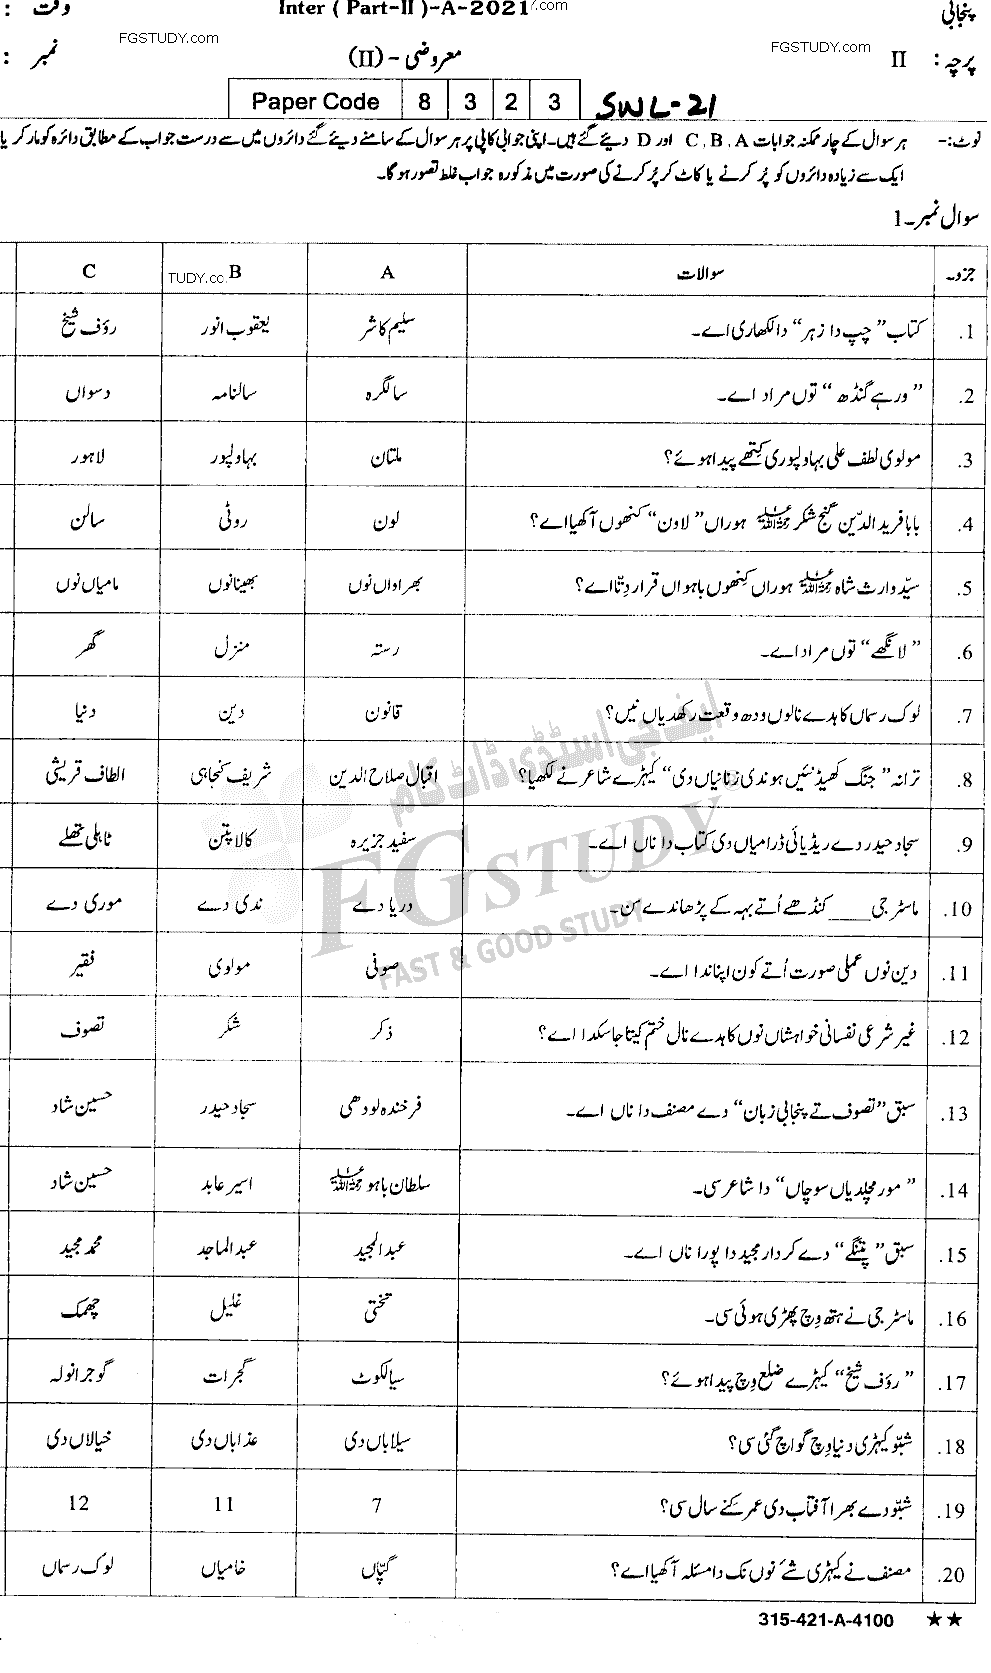 پنجابی Inter ( Part-II )-A-2021 وقت :
FGSTUDY.com
پرچہ : II معروضی - (II) نمبر :
FGSTUDY.com
Paper Code 8 3 2 3 SWL-21
نوٹ:- ہر سوال کے چار ممکنہ جوابات C , B , A اور D دیئے گئے ہیں۔ اپنی جوابی کاپی پر ہر سوال کے سامنے دیئے گئے دائروں میں سے درست جواب کے مطابق دائرہ کو مارکر یا
ایک سے زیادہ دائروں کو پُر کرنے یا کاٹ کر پُر کرنے کی صورت میں مذکورہ جواب غلط تصور ہو گا۔
سوال نمبر۔1
جزو۔ سوالات A B C
TUDY.cc
1. کتاب ”چپ دا زہر“ دا لکھاری اے۔ سلیم کاشر یعقوب انور رؤف شیخ
2. ”ورہے گنڈھ“ توں مراد اے۔ سالگرہ سالنامہ دسواں
3. مولوی لطف علی بہاولپوری کتھے پیدا ہوئے؟ ملتان بہاولپور لاہور
4. بابا فرید الدّین گنج شکر ہوراں ”لاون“ کنھوں آکھیا اے؟ لون روٹی سالن
5. سیّد وارث شاہ ہوراں کنھوں باہواں قرار دِتّا اے؟ بھراواں نوں بھینا نوں مامیاں نوں
6. ”لانگھے“ توں مراد اے۔ رستہ منزل گھر
7. لوک رسماں کاہدے نالوں ودھ وقعت رکھدیاں نیں؟ قانون دین دنیا
8. ترانہ ”جنگ کھیڈ نئیں ہوندی زنانیاں دی“ کیہڑے شاعر نے لکھیا؟ اقبال صلاح الدین شریف کنجاہی الطاف قریشی
9. سجاد حیدر دے ریڈیائی ڈرامیاں دی کتاب دا ناں اے۔ سفید جزیرہ کالا پتن ٹاہلی تھلے
10. ماسٹر جی ____ کنڈھے اُتے بہہ کے پڑھاندے سن۔ دریا دے ندی دے موری دے
11. دین نوں عملی صورت اُتے کون اپناندا اے۔ صوفی مولوی فقیر
12. غیر شرعی نفسانی خواہشاں نوں کاہدے نال ختم کیتا جا سکدا اے؟ ذکر شکر تصوف
13. سبق ”تصوف تے پنجابی زبان“ دے مصنف دا ناں اے۔ فرخندہ لودھی سجاد حیدر حسین شاد
14. ”مور مچلدیاں سوچاں“ دا شاعر سی۔ سلطان باہو اسیر عابد حسین شاد
15. سبق ”پتنگے“ دے کردار مجید دا پورا ناں اے۔ عبدالمجید عبدالماجد محمد مجید
16. ماسٹر جی نے ہتھ وچ پھڑی ہوئی سی۔ تختی غلیل چھمک
17. ”رؤف شیخ“ کیہڑے ضلع وچ پیدا ہوئے؟ سیالکوٹ گجرات گوجرانولہ
18. شبّو کیہڑی دنیا وچ گواچ گئی سی؟ سیلاباں دی عذاباں دی خیالاں دی
19. شبّو دے بھرا آفتاب دی عمر کنے سال سی؟ 7 11 12
20. مصنف نے کیہڑی شئے نوں نک دا مسئلہ آکھیا اے؟ گپّاں خامیاں لوک رسماں
ایف جی اسٹڈی ڈاٹ کام
FG STUDY
FAST & GOOD STUDY
315-421-A-4100 ★★